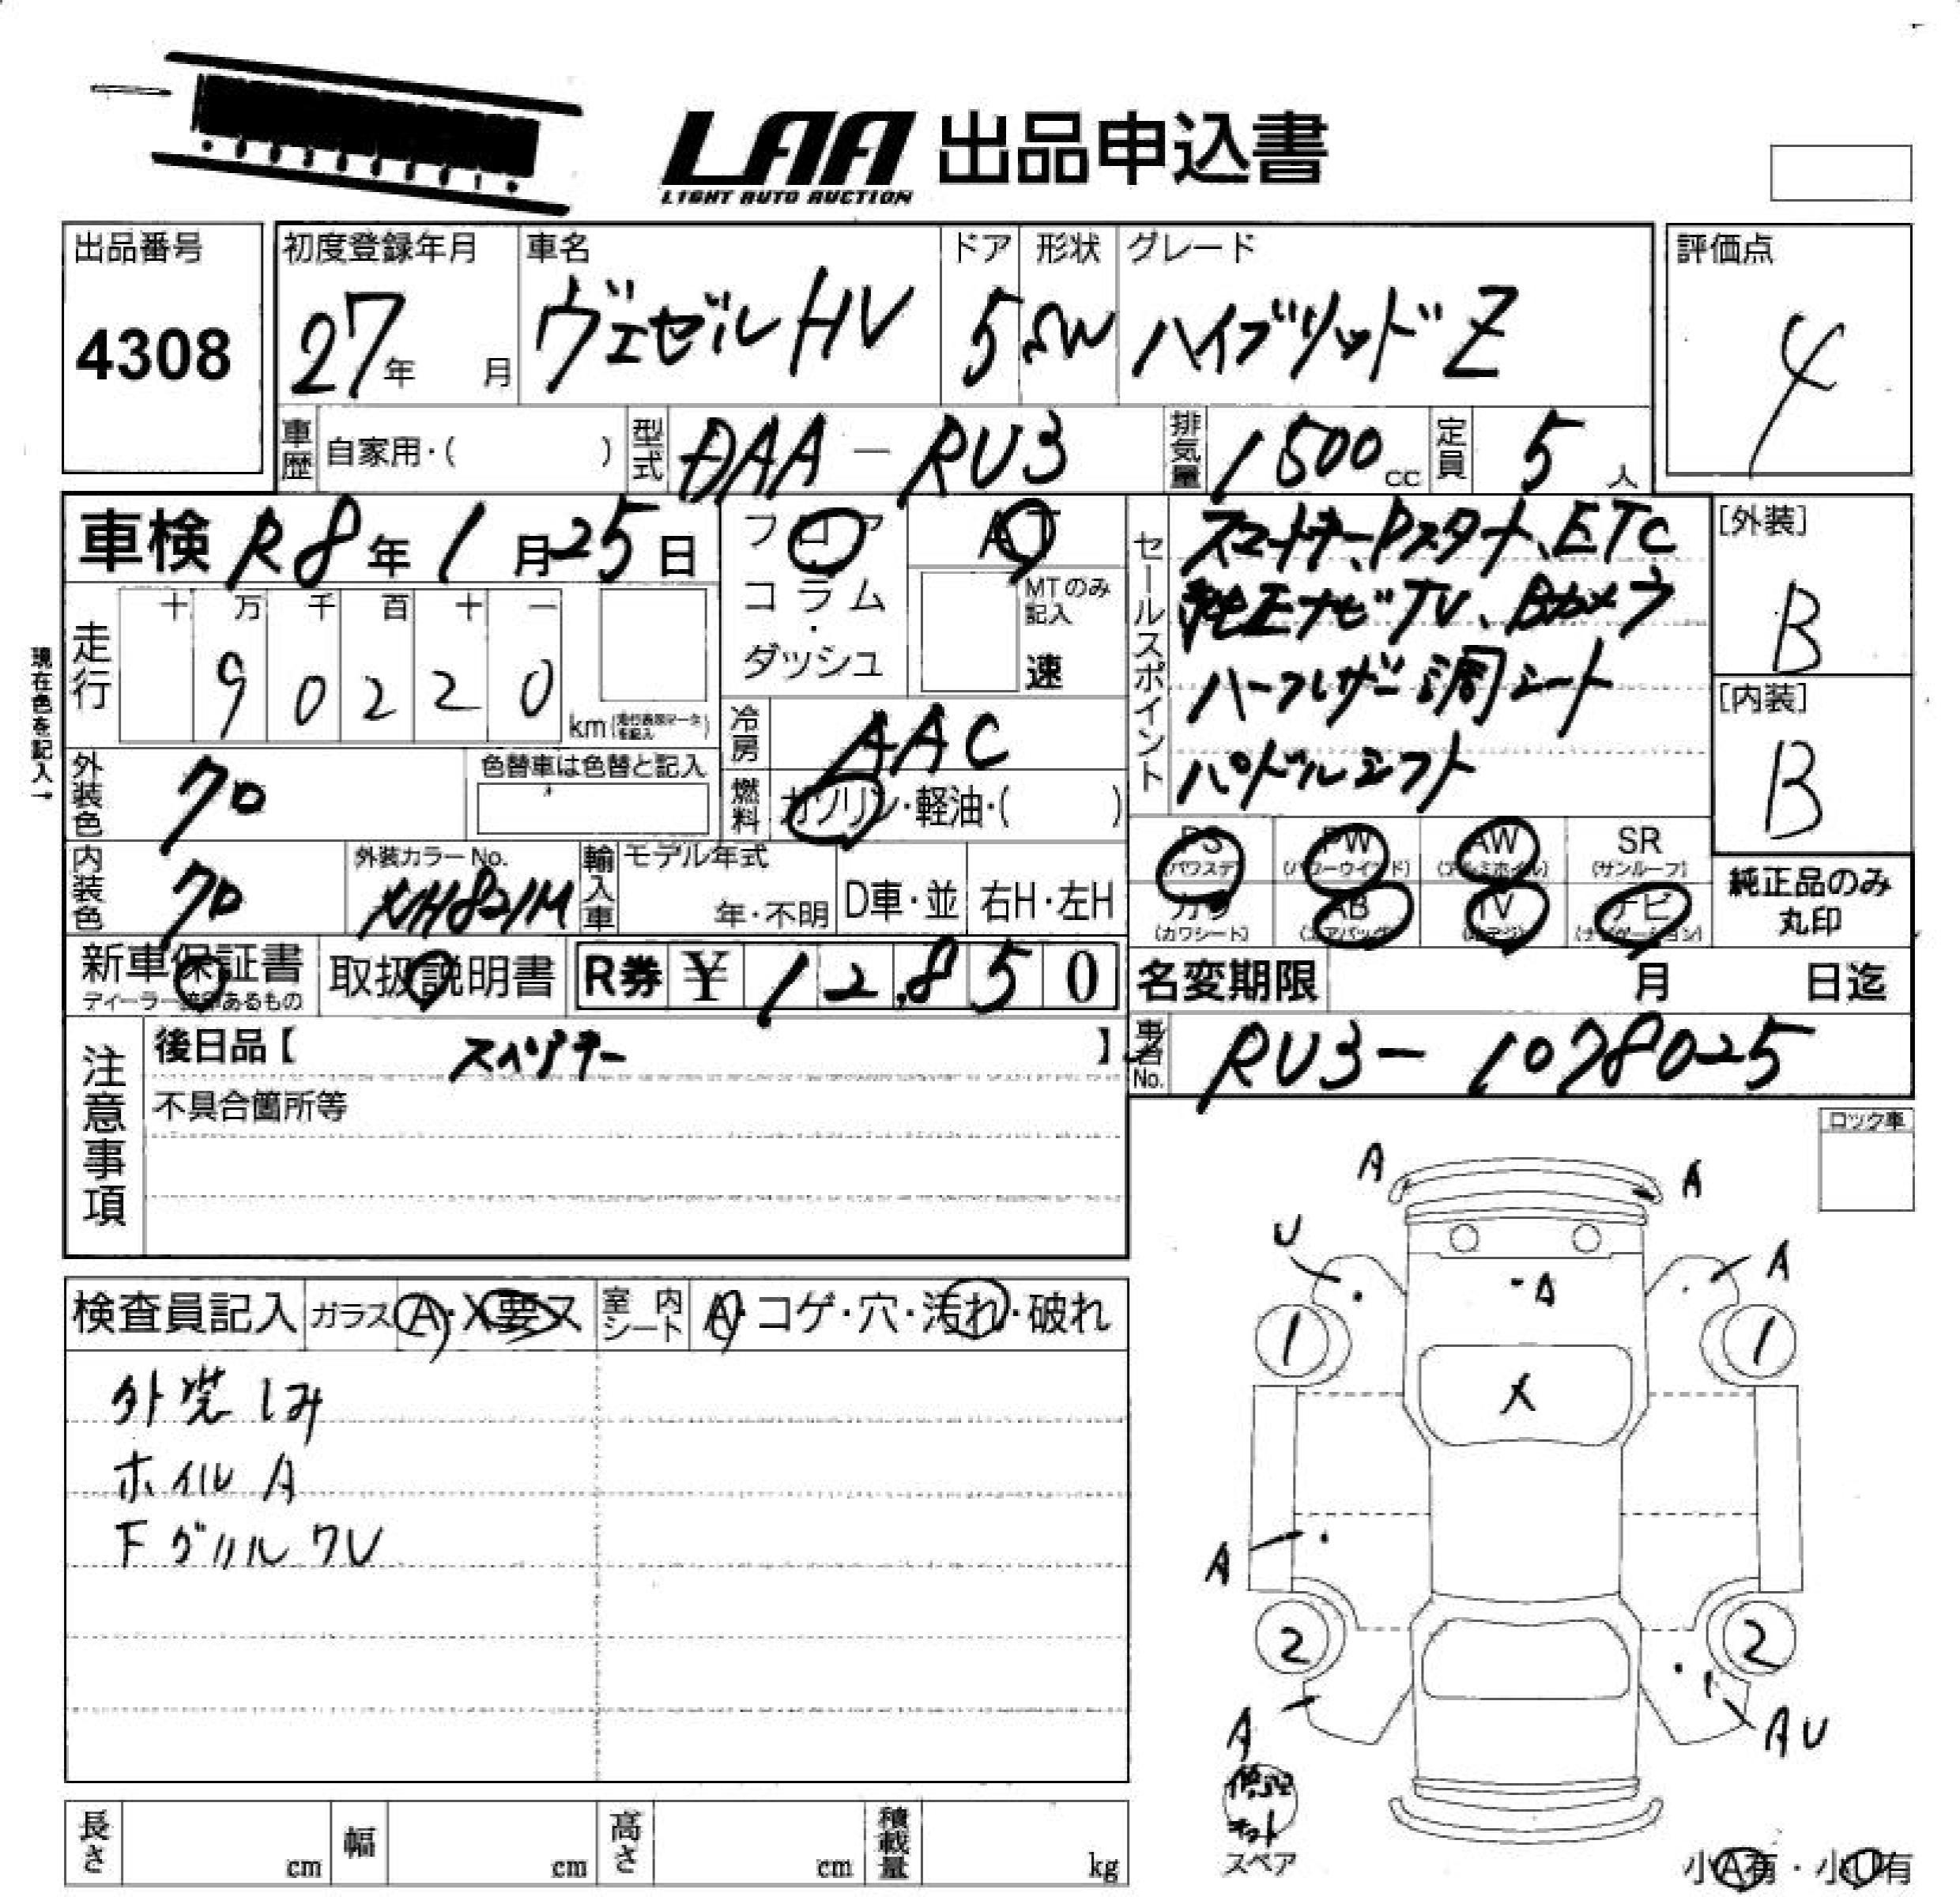 LAA 出品申込書
LIGHT AUTO AUCTION
出品番号
4308
初度登録年月
27年 月
車名
ヴェゼルHV
ドア
5
形状
SW
グレード
ハイブリッドZ
評価点
4
車歴
自家用・( )
型式
DAA-RU3
排気量
1500cc
定員
5人
車検 R8年1月25日
フロア
コラム・
ダッシュ
AT
MTのみ
記入
速
セールスポイント
スマートキー、Pスタート、ETC
純正ナビTV、Bカメラ
ハーフレザー調シート
パドルシフト
[外装]
B
[内装]
B
現在色を記入→
走行
十 万 千 百 十 一
9 0 2 2 0
km
冷房
AAC
燃料
ガソリン・軽油・( )
外装色
クロ
色替車は色替と記入
内装色
クロ
外装カラーNo.
XNH821M
輸入車
モデル年式
年・不明
D車・並
右H・左H
PS
(パワステ)
PW
(パワーウインド)
AW
(アルミホイル)
SR
(サンルーフ)
カワ
(カワシート)
AB
(エアバッグ)
TV
(地デジ)
ナビ
(ナビゲーション)
純正品のみ
丸印
新車保証書
取扱説明書
R券 ¥12,850
名変期限 月 日迄
No.
RU3-1078025
注意事項
後日品【 スペアキー 】
不具合箇所等
ロック車
検査員記入 ガラス A・X要ス
室内シート A・コゲ・穴・汚れ・破れ
外装しみ
ホイルA
下グリルワレ
A
A
U
A
A
1
1
X
A
2
2
A
AU
修理
キット
スペア
小A有・小U有
長さ cm
幅 cm
高さ cm
積載量 kg